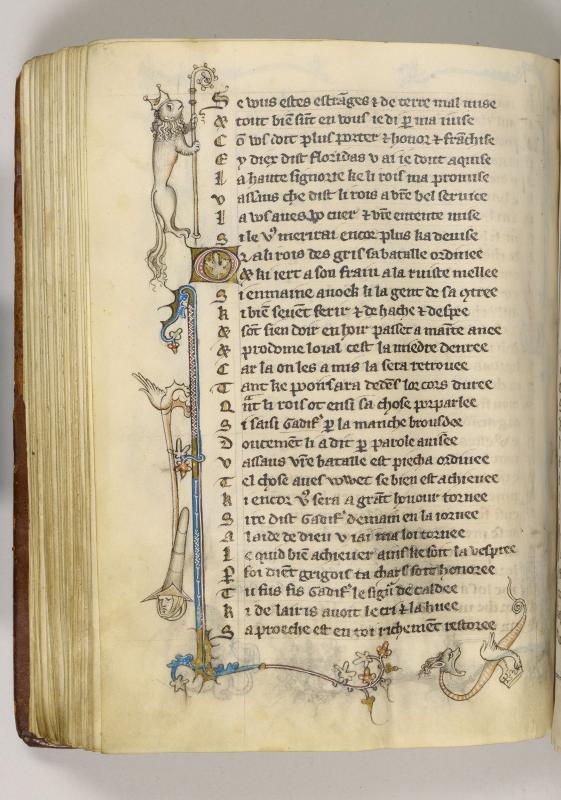 Se vous estes estranges ⁊ de terre mal mise
& tout biē sūt en vous ie di ꝑ ma mise
Cō vo⁹ doit plus porter ⁊ honor ⁊ frāchise
Ey diex dist floridas v ai ie dont aquise
La haute signorie ke li rois ma promise
vassaus che dist li rois a vr̄e bel seruice
La vo⁹ aues cuer ⁊ vr̄e entente mise
Si le v⁹ merirai encor plus ka deuise
Or a li rois des gris sa bataille ordinee
& ki iert a son frain a la ruiste mellee
Si enmaine auoek li la gent de sa
ki biē seuent ferir ⁊ de hache ⁊ despee
& sōt sien doit en hoir passer a
& prodome loial cest la miedre denree
Car la on les a mis la sera retrouee
Tant ke dedēs lor cors duree
Qn̄t li rois ot ensi sa chose porparlee
Si saisi Gadif' ꝑ la manche broudee
Doucemēt li a dit ꝑ parole auisee
vassaus vr̄e bataille est piecha ordinee
Tel chose aues se bien est achieuee
ki encor v⁹ sera a grāt honour tornee
Sire dist Gadif' demain en la iornee
A laide de dieu v iai ma loi tornee
Le quid biē achieuer ains ke soit la vespree
Ꝑ foi diēt grigois ta chars soit honoree
Tu fus fis Gadif' le sign̄' de caldee
ki de lairis auoit le cri ⁊ la huee
Sa proeche est en toi richemēt restoree